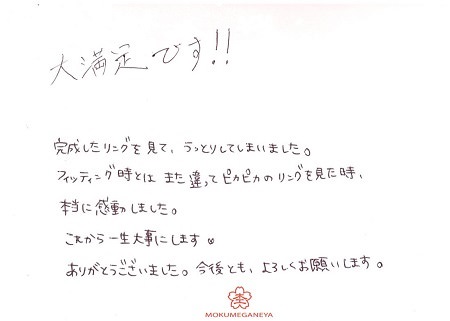 大満足です!!
完成したリングを見て、うっとりしてしまいました。
フィッティング時とは また違って ピカピカの リングを見た時、
本当に感動しました。
これから一生大事にします
ありがとうございました。今後とも、よろしくお願いします。
MOKUMEGANEYA